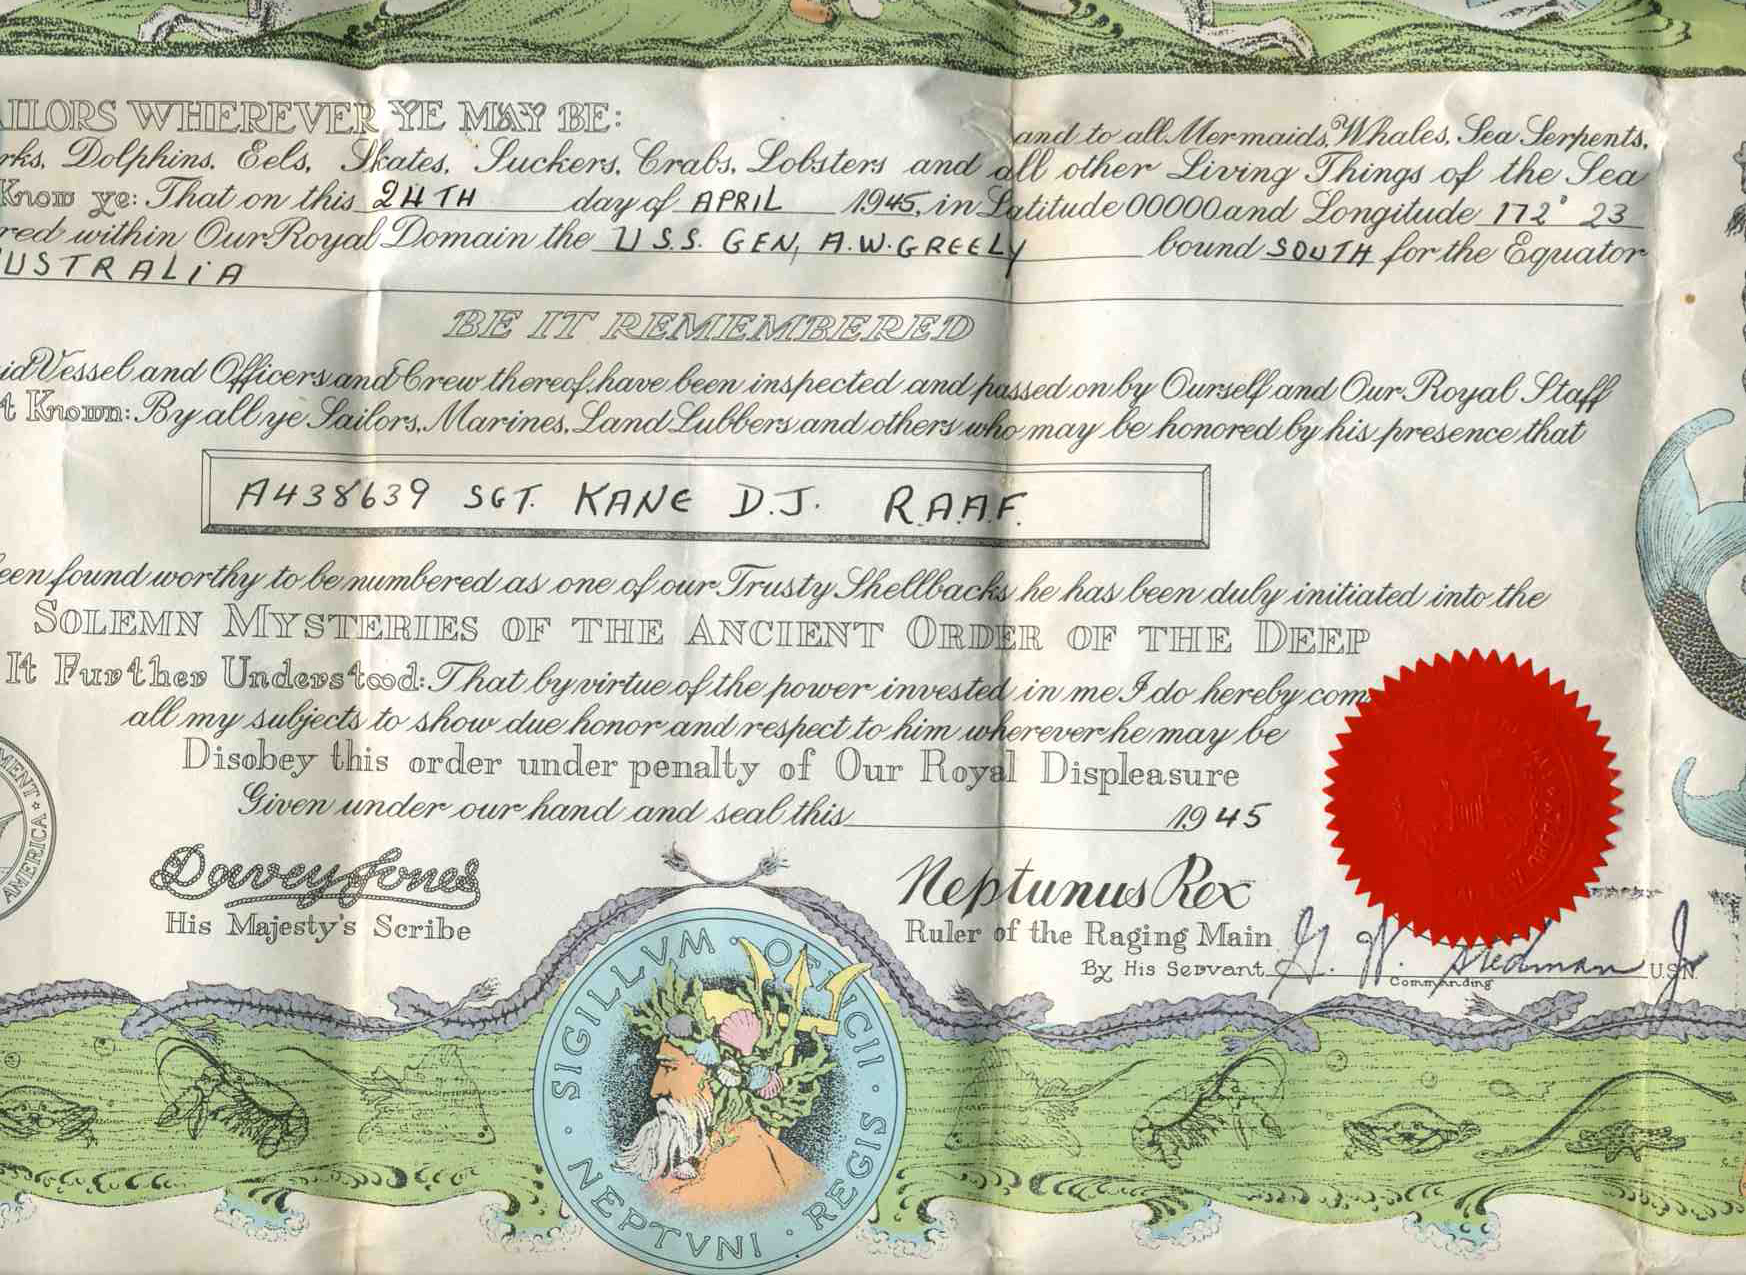 AILORS WHEREVER YE MAY BE: and to all Mermaids, Whales, Sea Serpents,
rks, Dolphins, Eels, Skates, Suckers, Crabs, Lobsters and all other Living Things of the Sea
Know ye: That on this 24TH day of APRIL 1945, in Latitude 00000 and Longitude 172° 23
red within Our Royal Domain the U.S.S. GEN, A.W. GREELY bound SOUTH for the Equator
USTRALIA
BE IT REMEMBERED
id Vessel and Officers and Crew thereof, have been inspected and passed on by Ourself and Our Royal Staff
t Known: By all ye Sailors, Marines, Land Lubbers and others who may be honored by his presence that
A438639 SGT. KANE D.J. R.A.A.F.
een found worthy to be numbered as one of our Trusty Shellbacks he has been duly initiated into the
SOLEMN MYSTERIES OF THE ANCIENT ORDER OF THE DEEP
It Further Understood: That by virtue of the power invested in me I do hereby com
all my subjects to show due honor and respect to him wherever he may be
Disobey this order under penalty of Our Royal Displeasure
Given under our hand and seal this 1945
MENT · AMERICA
Davey Jones
His Majesty's Scribe
Neptunus Rex
Ruler of the Raging Main
By His Servant G. W. Stedman Jr U.S.N.
Commanding
SIGILLVM · OFFICII · REGIS · NEPTVNI ·